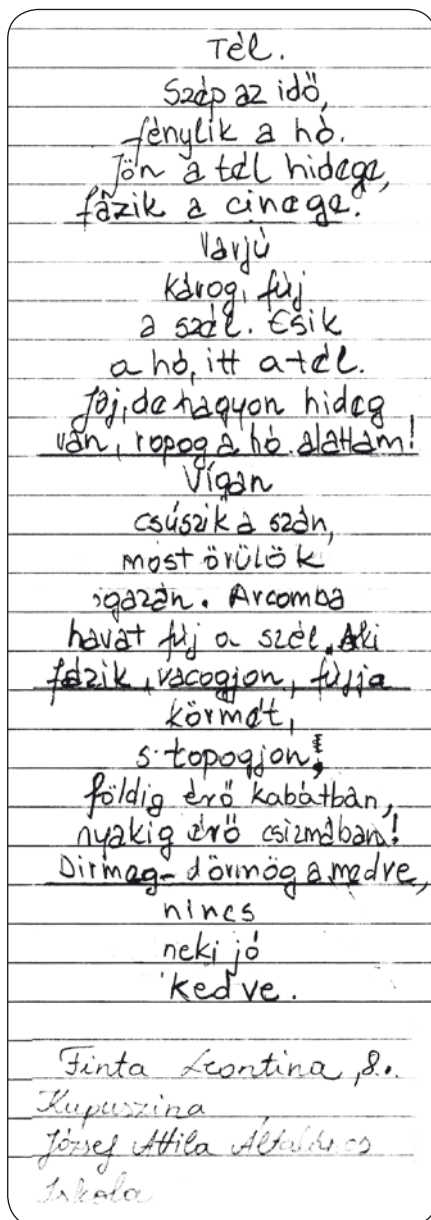 Tél.
Szép az idő,
fénylik a hó.
Jön a tél hidege,
fázik a cinege.
Varjú
károg, fúj
a szél. Esik
a hó, itt a tél.
Jaj, de nagyon hideg
van, ropog a hó alattam!
Vígan
csúszik a szán,
most örülök
igazán. Arcomba
havat fúj a szél. Aki
fázik, vacogjon, fújja
körmét,
s topogjon,
földig érő kabátban,
nyakig érő csizmában!
Dirmeg-dörmög a medve,
nincs
neki jó
kedve.
Finta Leontina, 8.
Kupuszina
József Attila Általános
Iskola